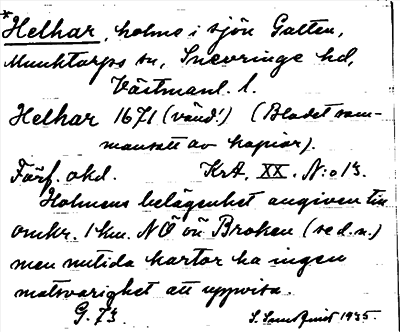 *Helhar, holme i sjön Galten,
Munktorps sn, Snevringe hd,
Västmanl. l.
Helhar 1671 (vänd!) (Bladet sam-
mansatt av kopior).
Förf. okd. KrA, XX. N:o 13.
Holmens belägenhet angiven till
omkr. 1 km. NÖ om Broken (se d.n.)
men nutida kartor ha ingen
motsvarighet att uppvisa.
G. 73. S. Landquist 1935.